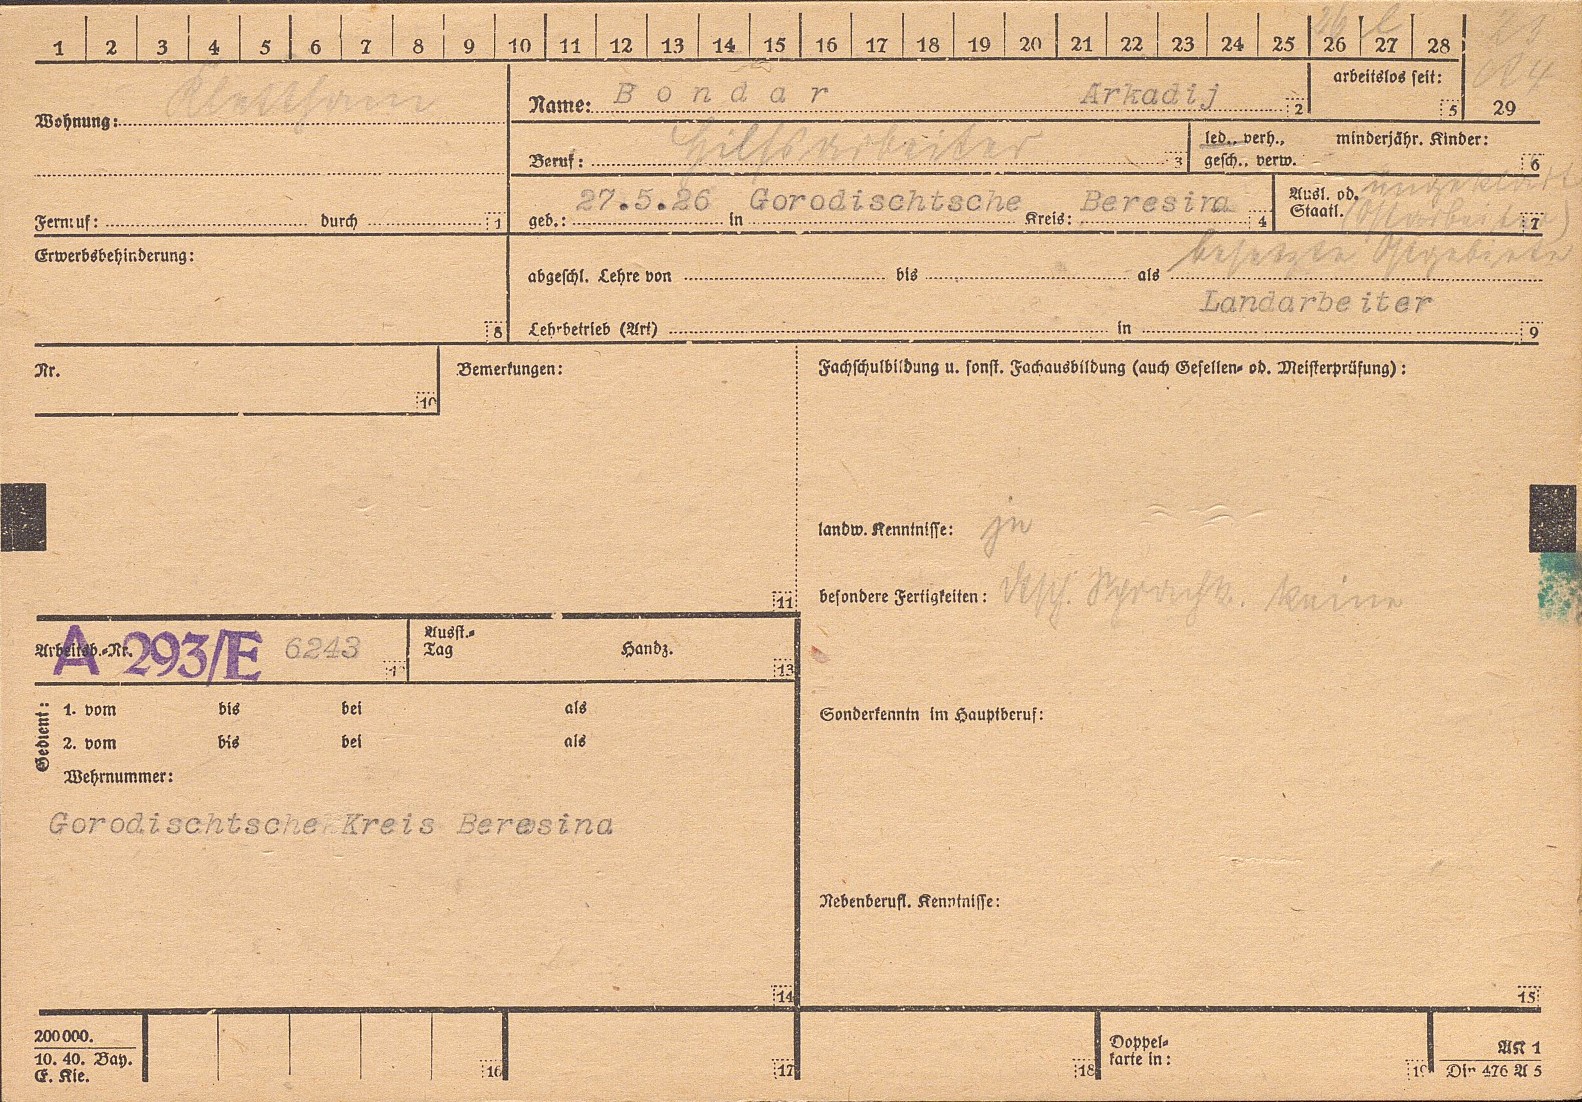 1 2 3 4 5 6 7 8 9 10 11 12 13 14 15 16 17 18 19 20 21 22 23 24 25 26 27 28
arbeitslos seit:
5 29
Wohnung: Klettham
Name: Bondar Arkadij 2
Beruf: Hilfsarbeiter 3
led., verh., minderjähr. Kinder:
gesch., verw. 6
Fernruf: durch 1
geb.: 27.5.26 in Gorodischtsche Kreis: Beresina 4
Ausl. od. ungeklärt
Staatl. (Ostarbeiter) 7
besetzte Ostgebiete
Erwerbsbehinderung:
8
abgeschl. Lehre von bis als
Landarbeiter
Lehrbetrieb (Art) in 9
Nr.
10
Bemerkungen:
11
Fachschulbildung u. sonst. Fachausbildung (auch Gesellen- od. Meisterprüfung):
landw. Kenntnisse: ja
besondere Fertigkeiten: dtsch. Sprachk. keine
Arbeitsb.-Nr. A 293/E 6243 12
Ausst.-
Tag Handz. 13
Sonderkenntn im Hauptberuf:
Gedient:
1. vom bis bei als
2. vom bis bei als
Wehrnummer:
Gorodischtsche Kreis Beresina
14
Nebenberufl. Kenntnisse:
15
200000.
10. 40. Bay.
E. Kie.
16 17 18
Doppel-
karte in: 19
AK 1
Din 476 A 5